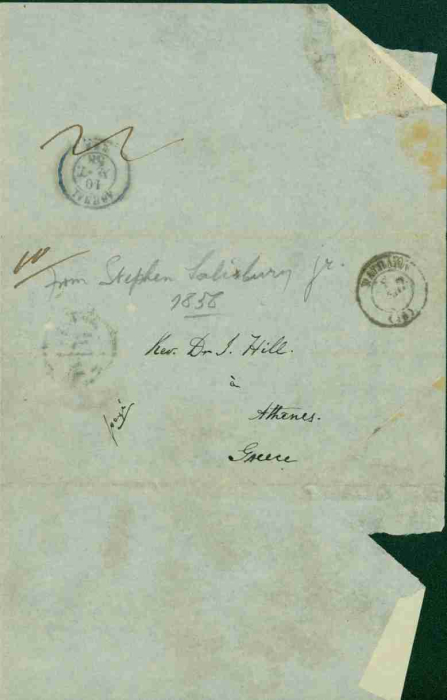 from Stephen Salisbury Jr.
1858
Rev. Dr J. Hill.
à
Athènes.
Greece
payé